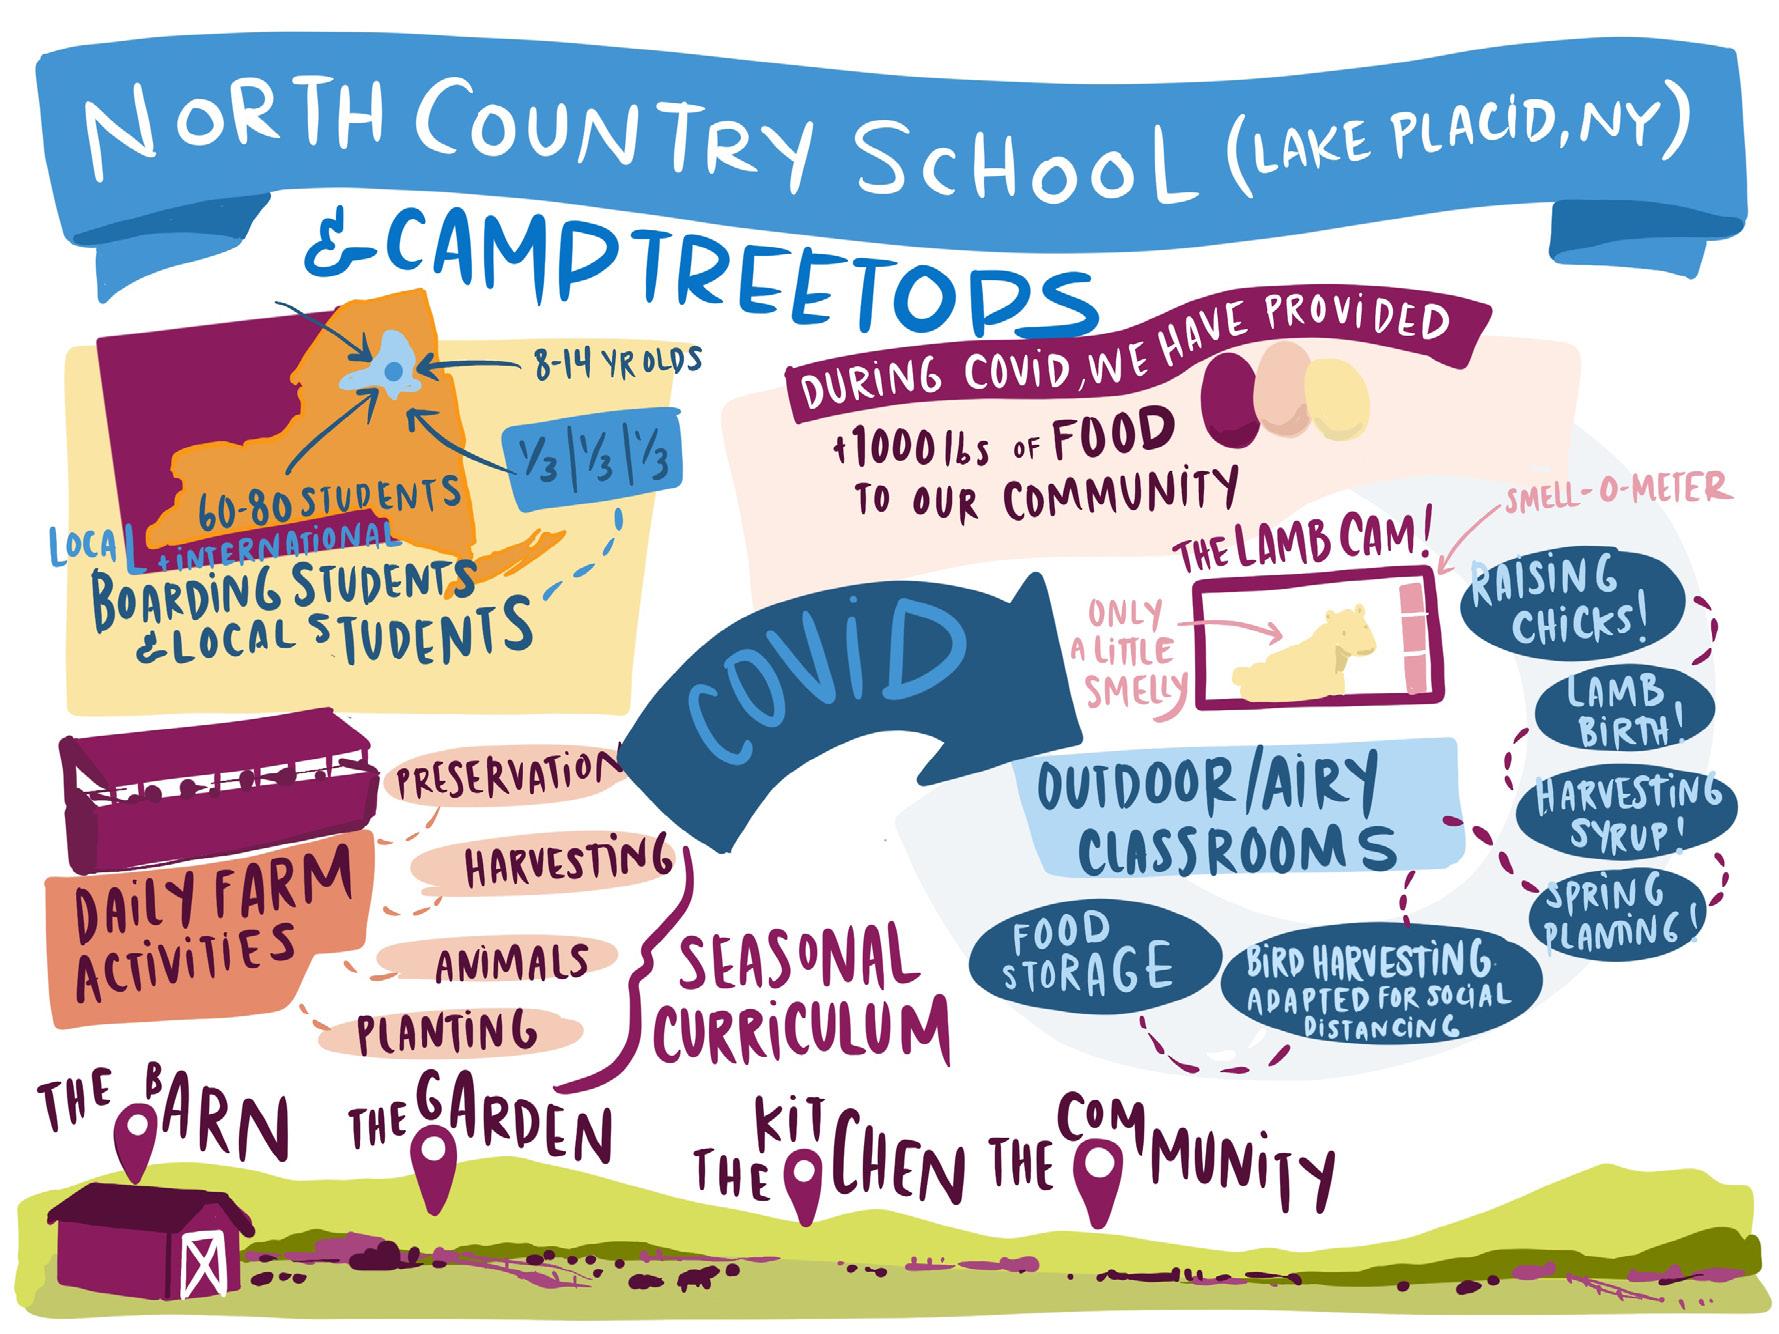 NORTH COUNTRY SCHOOL (LAKE PLACID, NY)
& CAMP TREETOPS
8-14 YR OLDS
1/3 | 1/3 | 1/3
60-80 STUDENTS
LOCAL + INTERNATIONAL
BOARDING STUDENTS
& LOCAL STUDENTS
DURING COVID, WE HAVE PROVIDED
+1000 lbs OF FOOD
TO OUR COMMUNITY
COVID
THE LAMB CAM!
SMELL-O-METER
ONLY
A LITTLE
SMELLY
RAISING
CHICKS!
LAMB
BIRTH!
HARVESTING
SYRUP!
SPRING
PLANTING!
OUTDOOR/AIRY
CLASSROOMS
FOOD
STORAGE
BIRD HARVESTING
ADAPTED FOR SOCIAL
DISTANCING
DAILY FARM
ACTIVITIES
PRESERVATION
HARVESTING
ANIMALS
PLANTING
SEASONAL
CURRICULUM
THE BARN
THE GARDEN
THE KITCHEN
THE COMMUNITY